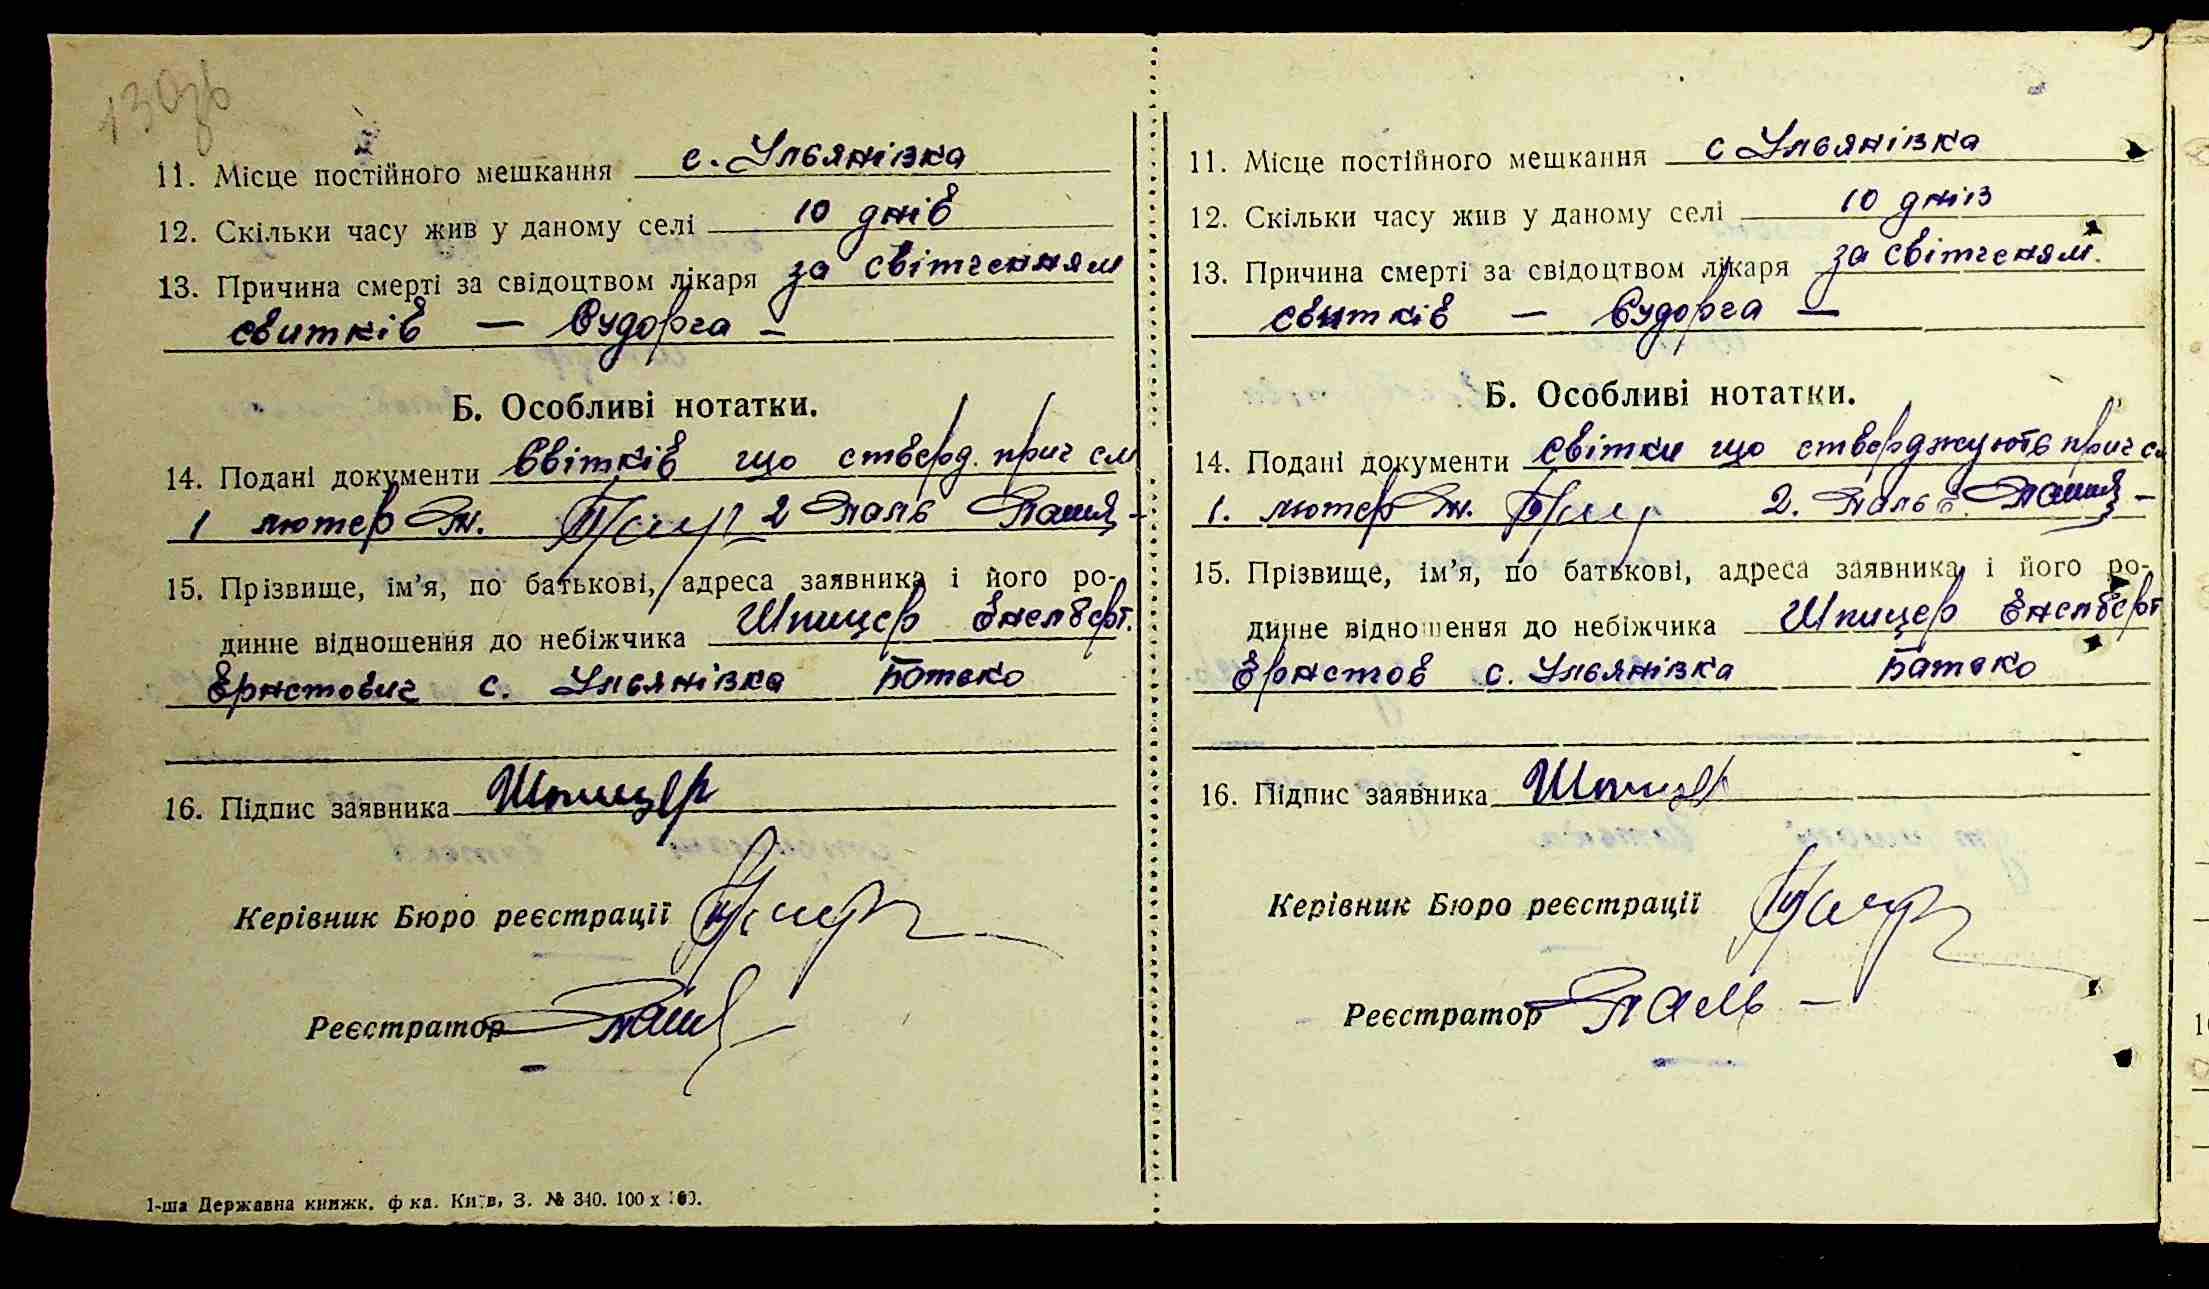 130зв
11. Місце постійного мешкання с. Ульянівка
12. Скільки часу жив у даному селі 10 днів
13. Причина смерті за свідоцтвом лікаря за світченням
свитків — Судорга —
Б. Особливі нотатки.
14. Подані документи Світків що стверд. прич см
1 лютер Паль
15. Прізвище, ім'я, по батькові, адреса заявника і його ро-
динне відношення до небіжчика Шпицер Енелберт.
Ернстович с. Ульянівка Батько
16. Підпис заявника Шпицер
Керівник Бюро реєстрації
Реєстратор
1-ша Державна книжк. ф-ка. Київ, З. № 340. 100 х 100.
11. Місце постійного мешкання с Ульянівка
12. Скільки часу жив у даному селі 10 днів
13. Причина смерті за свідоцтвом лікаря за світченям.
свитків — Судорга —
Б. Особливі нотатки.
14. Подані документи Світки що стверджують прич см
1. лютер 2. Паль
15. Прізвище, ім'я, по батькові, адреса заявника і його ро-
динне відношення до небіжчика Шпицер Енелберт
Ернстов с. Ульянівка Батько
16. Підпис заявника Шпицер
Керівник Бюро реєстрації
Реєстратор Паль —